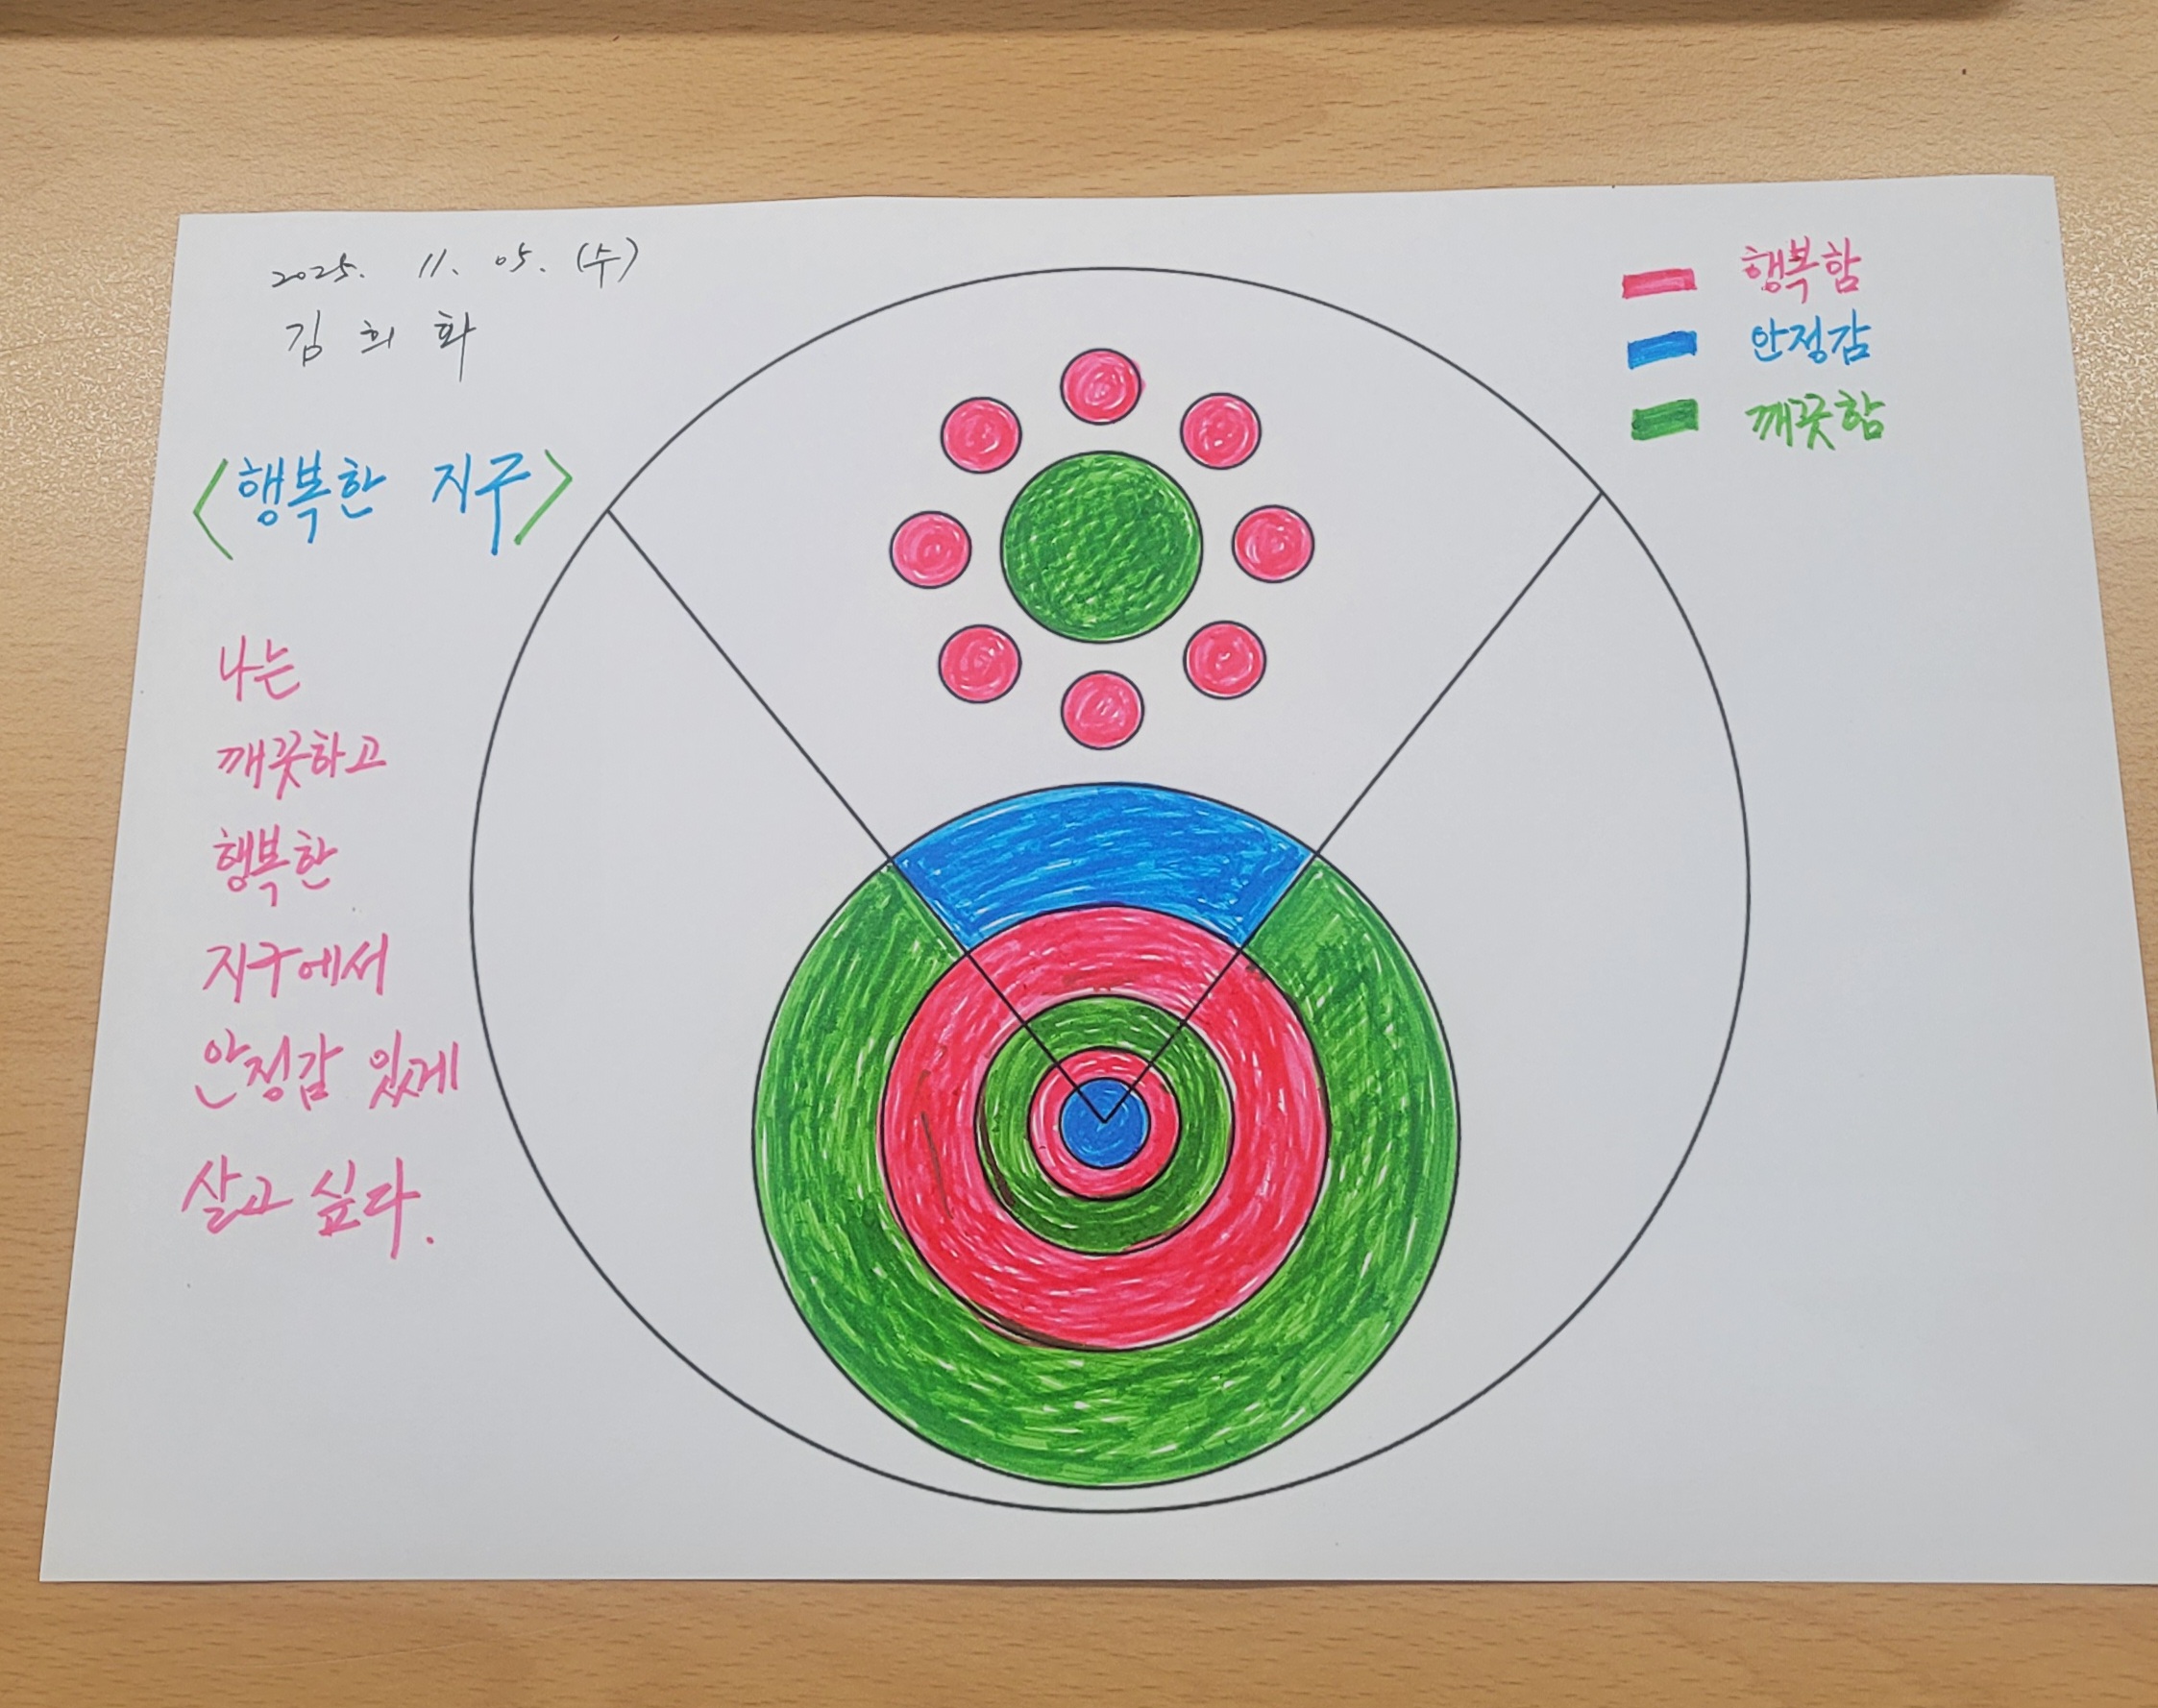 2025. 11. 05. (수)
김희화
<행복한 지구>
나는
깨끗하고
행복한
지구에서
안정감 있게
살고 싶다.
행복함
안정감
깨끗함